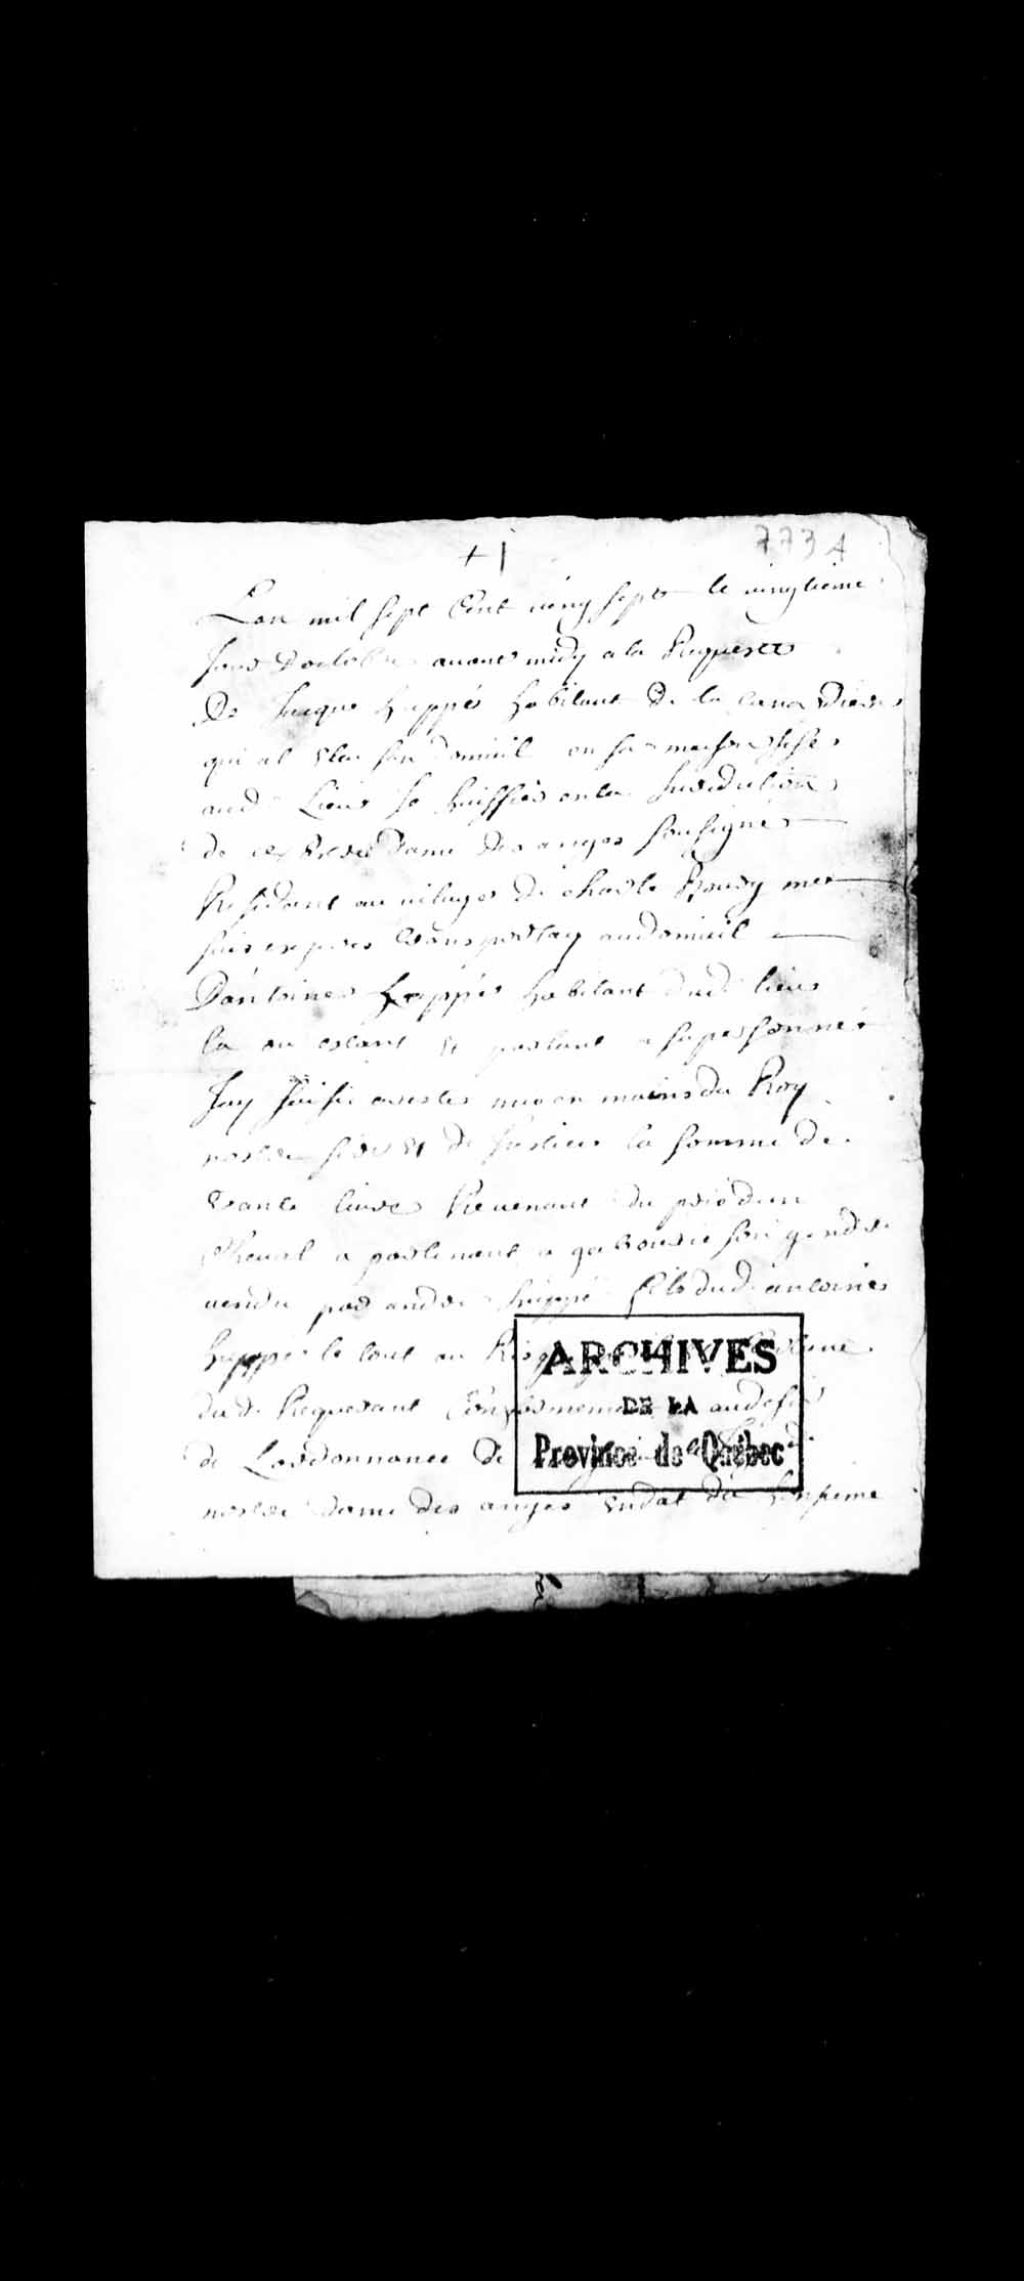 + j
7734
Lan mil sept Cent vingt sept le vingtieme
Jour Doctobre auant midy a la Requeste
De Jacque huppé habitant de la canardiere
qui at Elu son domicil en sa maison sise
aud Lieux Je huissier en la Jurediction
de Nostre Dame des anges sousigné
Residant au village de charle Bourg me
suis exprés transportay au domicil
Dantoine huppé habitant dud lieux
la ou estant et parlant a sa personne
Jay saisi arester mis en mains du Roy
nostre sire et de Justice la somme de
trante liures Prouenant du prié dun
Cheual a partenant a son gendre
vendu par andre huppé fils dud antoine
huppé le tout au
dud Requerant Conformement au desir
de Lordonnance de
nostre dame des anges Endat du honsieme
ARCHIVES
DE LA
Province de Québec